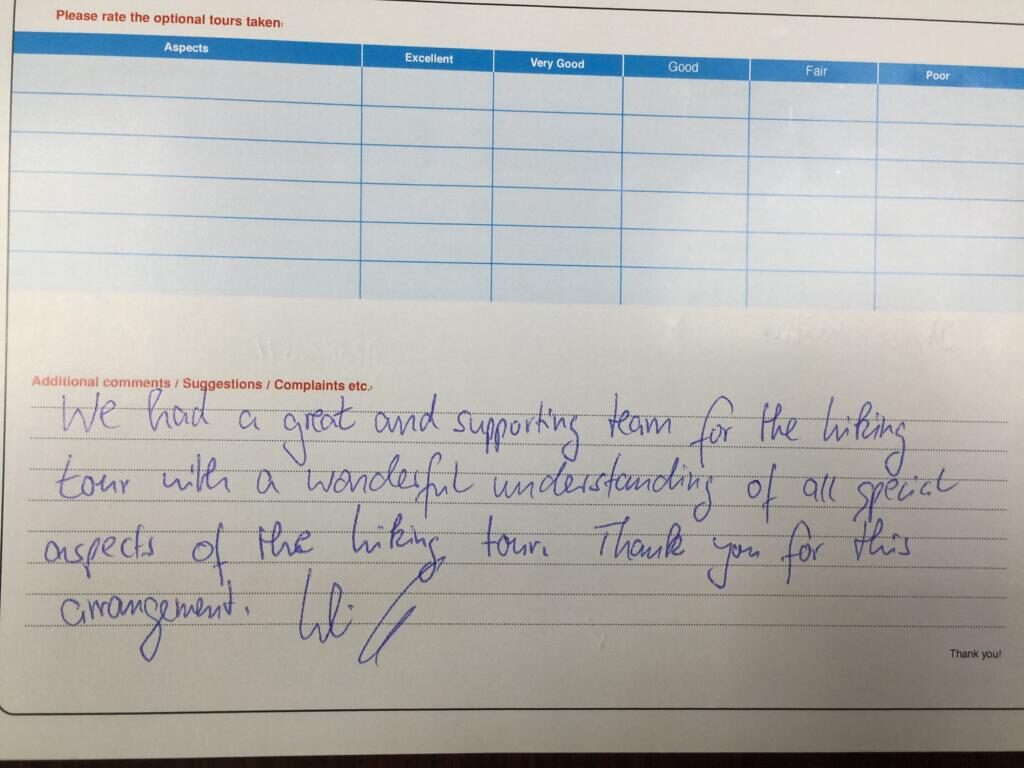 Please rate the optional tours taken:
Aspects Excellent Very Good Good Fair Poor
Additional comments / Suggestions / Complaints etc.:
We had a great and supporting team for the hiking
tour with a wonderful understanding of all special
aspects of the hiking tour. Thank you for this
arrangement.
Thank you!